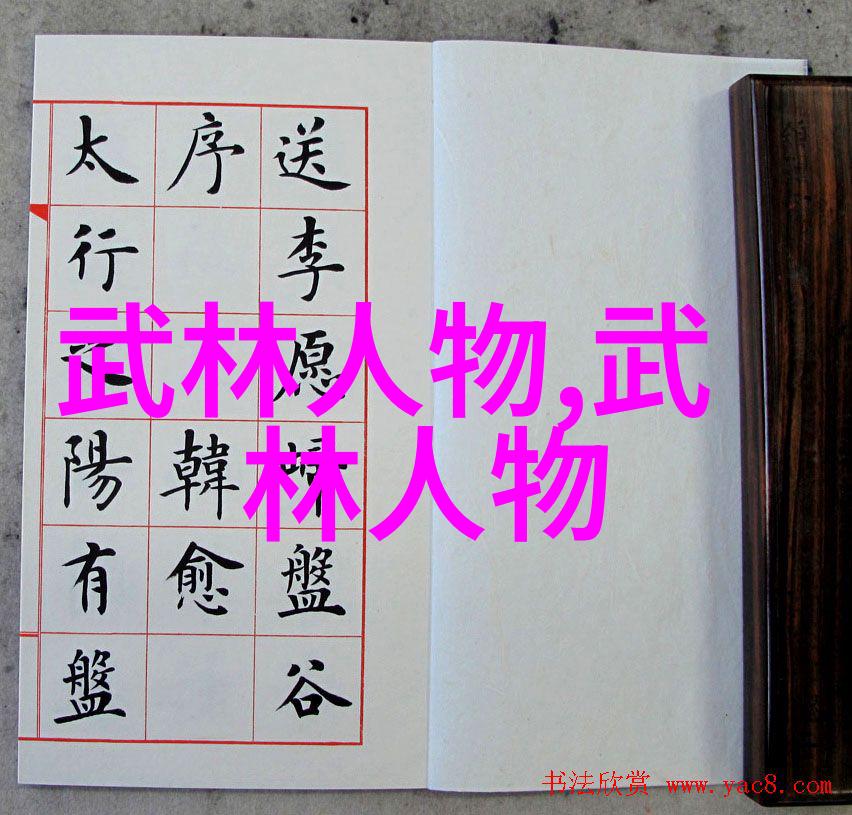 送李愿歸盤谷
序 韓愈
太行之陽有盤
武林人物,武
林人物
书法欣赏 www.yac8.com